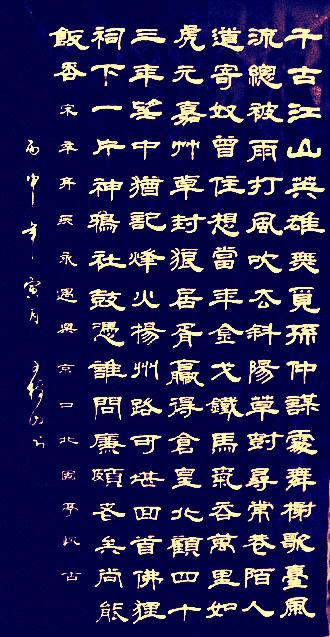 千古江山英雄無覓孫仲謀處舞榭歌臺風
流總被雨打風吹去斜陽草樹尋常巷陌人
道寄奴曾住想當年金戈鐵馬氣吞萬里如
虎元嘉艸草封狼居胥贏得倉皇北顧四十
三年望中猶記烽火揚州路可堪回首佛狸
祠下一片神鴉社鼓憑誰問廉頗老矣尚能
飯否 宋辛弃疾永遇樂京口北固亭懷古
丙申年寅月